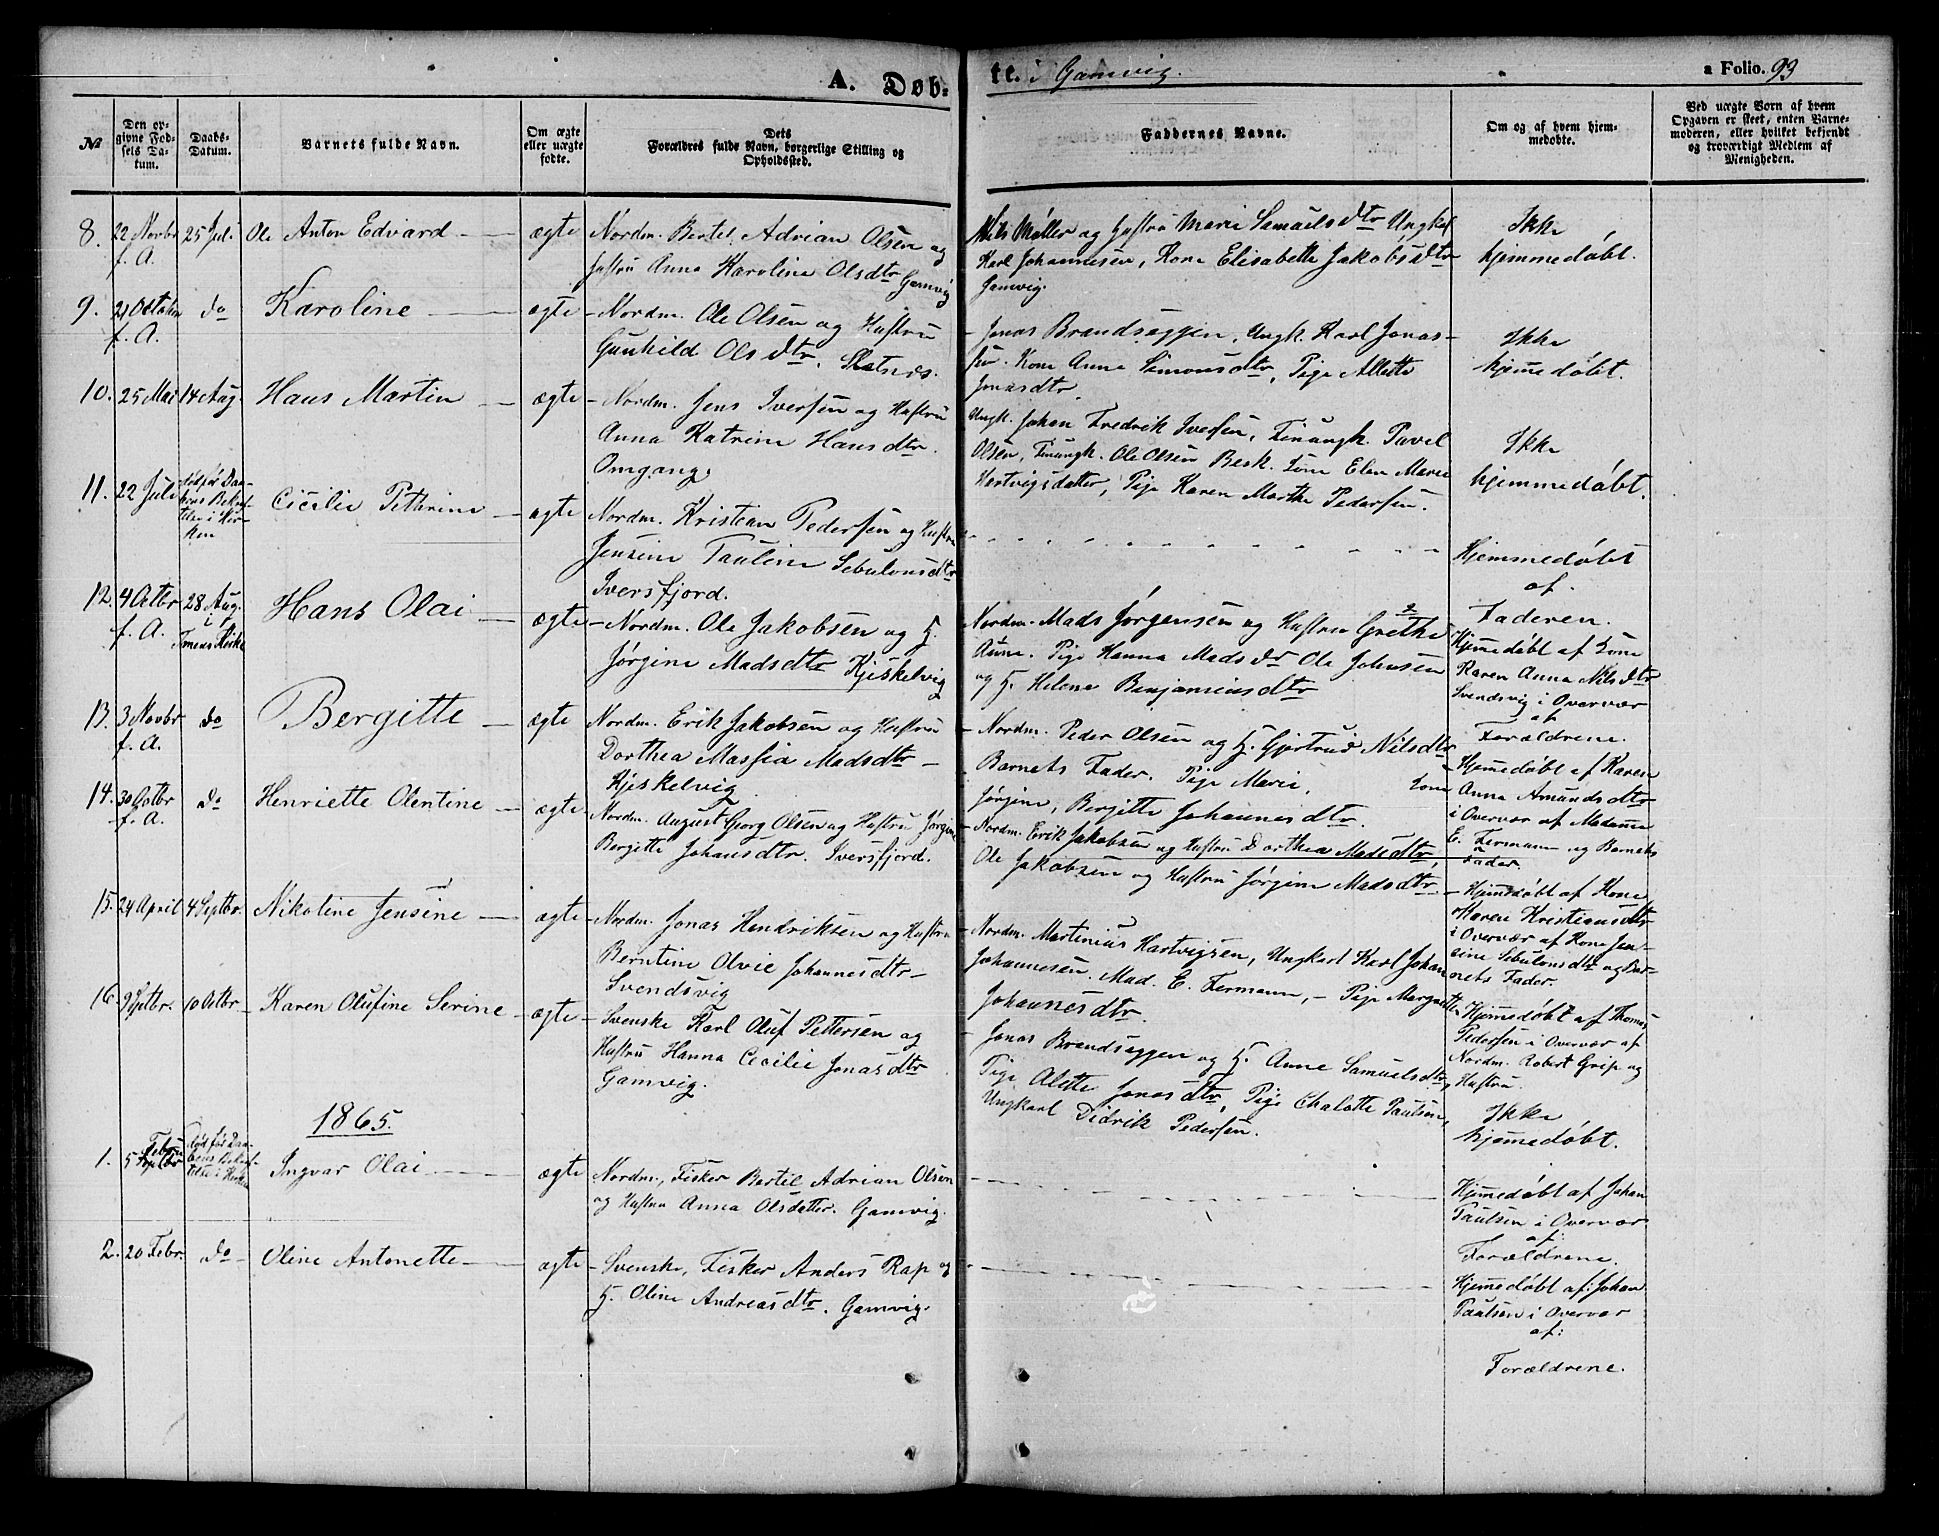 A. Døb- te. i Gamvig. a Folio. 93
№
Den op-
givne Fød-
sels Da-
tum.
Daabs-
Datum.
Barnets fulde Navn.
Om ægte
eller uægte
fødte.
Dets
Forældres fulde Navn, borgerlige Stilling og
Opholdssted.
Faddernes Navne.
Om og af hvem hjem-
medøbte.
Ved uægte Børn af hvem
Opgaven er skeet, enten Barne-
moderen, eller hvilket bekjendt
og troværdigt Medlem af
Menigheden.
8. 22 Novbr f. A. 25 Juli Ole Anton Edvard ægte
Nordm. Bertel Adrian Olsen og
Hustru Anna Karoline Olsdtr Gamvig
Nils Møller og Hustru Marie Samuelsdtr Ungkl
Karl Johannesen, Kone Elisabeth Jakobsdtr
Gamvig.
Ikke
hjemmedøbt.
9. 21 October f. A. do Karoline ægte
Nordm. Ole Olsen og Hustru
Gunhild Olsdtr. Sletnes.
Jonas Brandseggen, Ungk. Karl Jonas-
sen. Kone Anne Simonsdtr, Pige Allette
Jonasdtr.
Ikke
hjemedøbt.
10. 25 Mai 14 Aug. Hans Martin ægte
Nordm. Jens Iversen og Hustru
Anna Katrine Hansdtr.
Omgang.
Ungk. Johan Fredrik Iversen, Finungk. Pavel
Olsen, Finungk. Ole Olsen Besk. Kone Elen Marie
Hartvigsdatter, Pige Karen Marthe Pedersen.
Ikke
hjemmedøbt.
11. 22 Juli
død før Daa-
bens Bekræf-
telse i Kir-
ken
Cicilie Pethrine ægte
Nordm. Kristian Pedersen og Hustru
Jensine Pauline Sebulonsdtr
Iversfjord.
Hjemmedøbt
af
Faderen.
12. 4 Octbr f. A. 28 Aug. i Finnes Kirke Hans Olai ægte
Nordm. Ole Jakobsen og H.
Jørgine Madsdtr Kjeskelvig
Nordm. Mads Jørgensen og Hustru Grethe
Anne. Pige Hanna Madsdr Ole Johnsen
og H. Helena Benjaminsdtr
Hjemedøbt af Kone
Karen Anna Nilsdtr
Svendsvig i Overvær
af
Forældrene.
13. 3 Novbr f. A. do Bergitte ægte
Nordm. Erik Jakobsen og Hustru
Dorthea Massia Madsdtr
Kjeskelvig
Nordm. Peder Olsen og H. Gjertrud Nilsdtr
Barnets Fader. Pige Marie, Kone
Jørgine, Bergitte Johannesdtr.
Hjemedøbt af Karen
Anna Amundsdtr
i Overvær af Madame
E. Fermann og Barnets
Fader.
14. 30 Octbr f. A. do Henriette Olentine ægte
Nordm. August Georg Olsen og Hustru Jørgine
Bergitte Johansdtr. Iversfjord.
Nordm. Erik Jakobsen og Hustru Dorthea Madsdtr,
Ole Jakobsen og Hustru Jørgine Madsdtr
Hjemedøbt af Kone
Karen Kristiansdtr
i Overvær af Kone Jen-
sine Sebulonsdtr og Bar-
nets Fader.
15. 24 April 4 Septbr. Nikoline Jensine ægte
Nordm. Jonas Hendriksen og Hustru
Berntine Olvie Johannesdtr
Svendsvig
Nordm. Martinius Hartvigsen, Ungkarl Karl Johan
Johannesen. Mad. E. Fermann, – Pige Margrethe
Johannesdtr.
Hjemedøbt af Thomas
Pedersen i Overvær af
Nordm. Robert Grip og
Hustru
16. 9 Septbr. 10 Octbr Karen Olufine Serine ægte
Svenske Karl Oluf Pettersen og
Hustru Hanna Cecilie Jonasdtr
Gamvig.
Jonas Brandseggen og H. Anne Samuelsdtr,
Pige Alette Jonasdtr, Pige Chalotte Paulsen,
Ungkarl Didrik Pedersen.
Ikke
hjemedøbt.
1865.
1. 5 Febru
død før Daa-
bens Bekræf-
telse i Kirken
Ingvar Olai ægte
Nordm, Fisker Bertil Adrian Olsen
og Hustru Anna Olsdatter. Gamvig.
Hjemedøbt af Johan
Paulsen i Overvær
af:
Forældrene.
2. 20 Febr. do Oline Antonette ægte
Svenske, Fisker Anders Rap og
H. Oline Andreasdtr. Gamvig.
Hjemedøbt af: Johan
Paulsen i Overvær
af:
Forældrene.